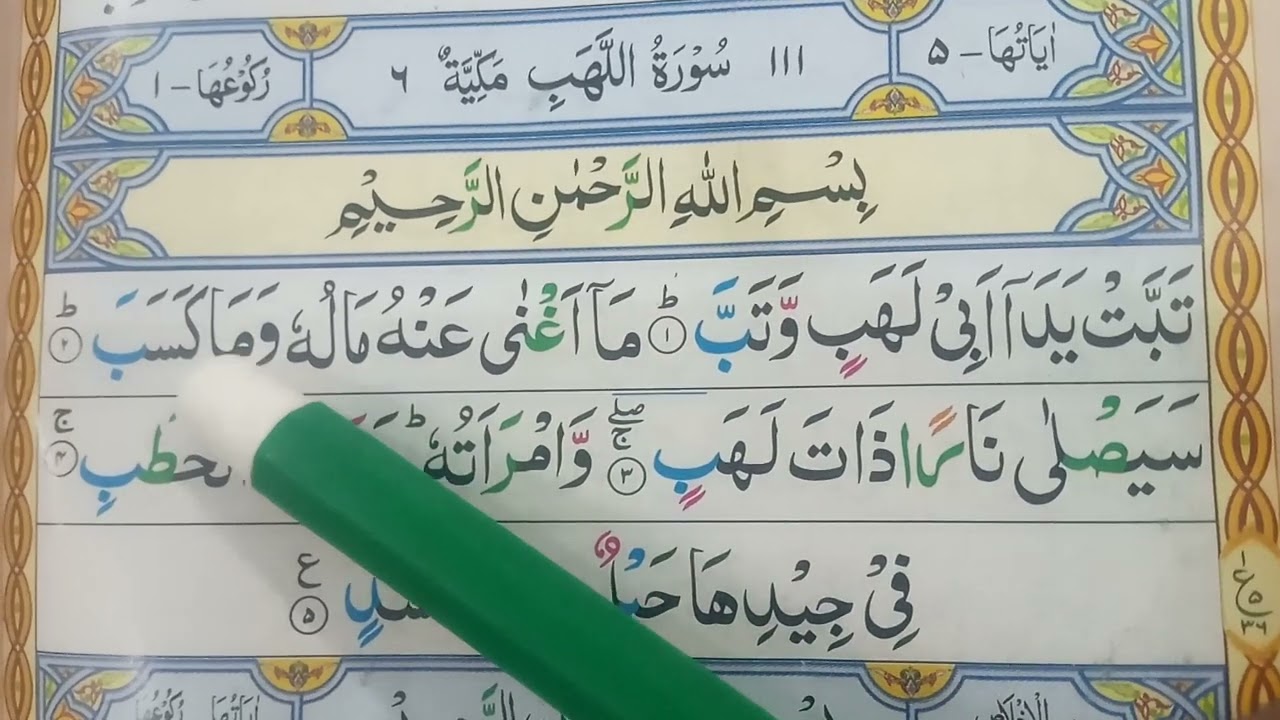 اٰيَاتُهَا - ۵ ١١١ سُوْرَةُ اللَّهَبِ مَكِّيَّةٌ ٦ رُكُوْعُهَا - ١
بِسْمِ اللّٰهِ الرَّحْمٰنِ الرَّحِيْمِ
تَبَّتْ يَدَاۤ اَبِيْ لَهَبٍ وَّتَبَّ ؕ ١ مَاۤ اَغْنٰى عَنْهُ مَالُهٗ وَمَا كَسَبَ ؕ ٢
سَيَصْلٰى نَارًا ذَاتَ لَهَبٍ ۖۚ ٣ وَّامْرَاَتُهٗ ؕ ۚ ۴
فِيْ جِيْدِهَا حَبْلٌ ۵ ع